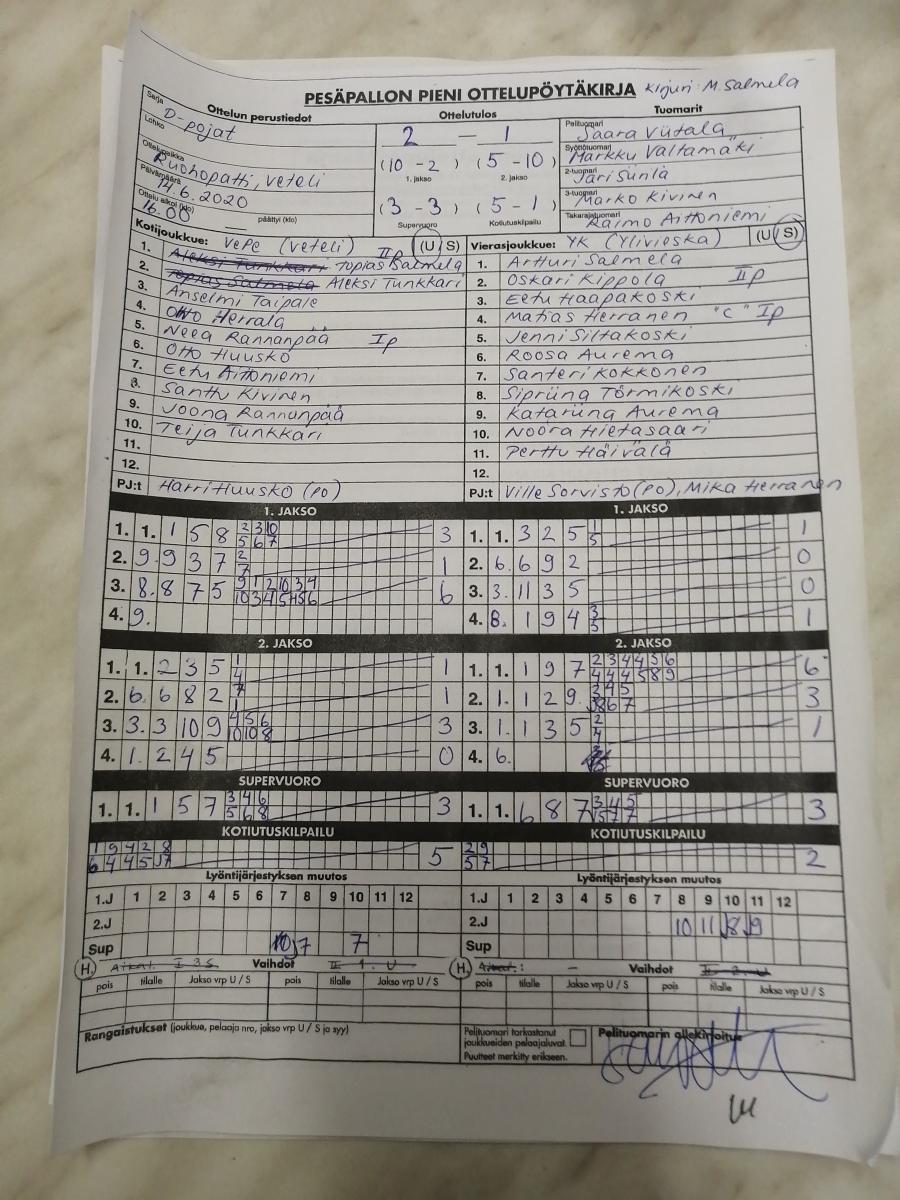 PESÄPALLON PIENI OTTELUPÖYTÄKIRJA Kirjuri: M. Salmela
Ottelun perustiedot Ottelutulos Tuomarit
Sarja D-pojat 2 — 1 Pelituomari Saara Viitala
Lohko (10 - 2) (5 - 10) Syöttötuomari Markku Valtamäki
Ottelupaikka Ruohopatti, Veteli 1. jakso 2. jakso 2-tuomari Jari Sunla
Päivämäärä 14.6.2020 (3 - 3) (5 - 1) 3-tuomari Marko Kivinen
Ottelu alkoi (klo) 16.00 päättyi (klo) — Supervuoro Kotiutuskilpailu Takarajatuomari Raimo Aittoniemi
Kotijoukkue: VePe (Veteli) (U/S) Vierasjoukkue: YK (Ylivieska) (U/S)
1. Aleksi Tunkkari Topias Salmela IIp 1. Artturi Salmela
2. Topias Salmela Aleksi Tunkkari 2. Oskari Kippola IIp
3. Anselmi Taipale 3. Eetu Haapakoski
4. Otto Herrala 4. Matias Herranen "C" Ip
5. Neea Rannanpää Ip 5. Jenni Siltakoski
6. Otto Huusko 6. Roosa Aurema
7. Eetu Aittoniemi 7. Santeri Kokkonen
8. Santtu Kivinen 8. Sipriina Törmikoski
9. Joona Rannanpää 9. Katariina Aurema
10. Teija Tunkkari 10. Noora Hietasaari
11. 11. Perttu Häivälä
12. 12.
PJ:t Harri Huusko (PO) PJ:t Ville Sorvisto (PO), Mika Herranen
1. JAKSO 1. JAKSO
1. 1. 1 5 8 2 3 10 3 1. 1. 3 2 5 1 1
5 6 7 5
2. 9. 9 3 7 2 1 2. 6. 6 9 2 0
7
3. 8. 8 7 5 9 1 2 10 3 4 6 3. 3. 11 3 5 0
10 3 4 5 4 5 6
4. 9. 4. 8. 1 9 4 3 1
5
2. JAKSO 2. JAKSO
1. 1. 2 3 5 1 1 1. 1. 1 9 7 2 3 4 4 5 6 6
4 4 4 4 5 8 9
2. 6. 6 8 2 7 1 2. 1. 1 2 9 3 4 5 3
1 8 6 7
3. 3. 3 10 9 4 5 6 3 3. 1. 1 3 5 2 1
10 10 8 4
4. 1. 2 4 5 0 4. 6.
SUPERVUORO SUPERVUORO
1. 1. 1 5 7 3 4 6 3 1. 1. 6 8 7 3 4 5 3
5 6 8 5 7 7
KOTIUTUSKILPAILU KOTIUTUSKILPAILU
1 9 4 2 8 5 2 9 2
6 4 4 5 7 5 7
Lyöntijärjestyksen muutos Lyöntijärjestyksen muutos
1.J 1 2 3 4 5 6 7 8 9 10 11 12 1.J 1 2 3 4 5 6 7 8 9 10 11 12
2.J 2.J 10 11 8 9
Sup 10 7 7 Sup
H. Aikal. I 3S Vaihdot II 1. U H. Aikal.: — Vaihdot II 2. U
pois tilalle Jakso vrp U / S pois tilalle Jakso vrp U / S pois tilalle Jakso vrp U / S pois tilalle Jakso vrp U / S
Rangaistukset (joukkue, pelaaja nro, jakso vrp U / S ja syy) Pelituomari tarkastanut Pelituomarin allekirjoitus
joukkueiden pelaajaluvat.
Puutteet merkitty erikseen.